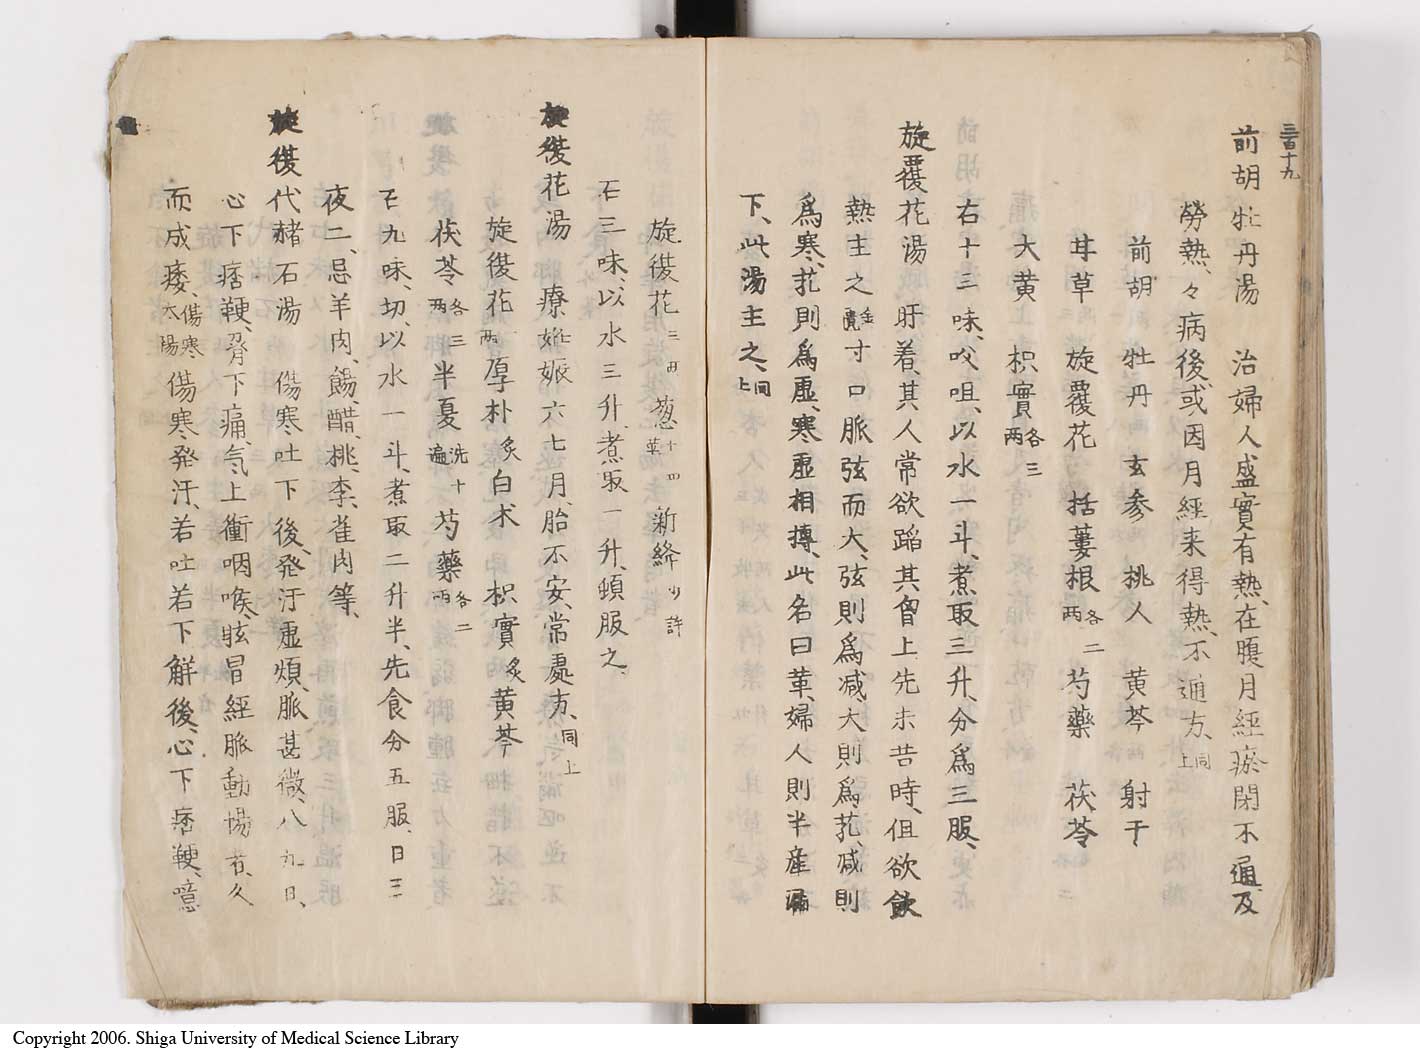 三百十九
前胡牡丹湯 治婦人盛實有熱、在腹月經瘀閉不通、及
勞熱、々病後、或因月經来得熱、不通方、同上
前胡 牡丹 玄参 桃人 黄芩 射干
甘草 旋覆花 括蔞根 各二兩 芍藥 茯苓
大黄 枳實 各三兩
右十三味、㕮咀、以水一斗、煮取三升、分爲三服、
旋覆花湯 肝着、其人常欲蹈其胷上先未苦時、但欲飲
熱主之 金匱 寸口脈弦而大、弦則爲减、大則爲芤、减則
爲寒、芤則爲虚、寒虚相摶、此名曰革、婦人則半産漏
下、此湯主之、同上
旋復花 三両 葱 十四莖 新絳 少許
右三味、以水三升、煮取一升、頓服之
旋復花湯 療姙娠六七月、胎不安、常處方、同上
旋復花 一兩 厚朴 炙 白朮 枳實 炙 黄芩
茯苓 各三兩 半夏 洗十遍 芍藥 各二兩
右九味、切、以水一斗、煮取二升半、先食分五服、日三
夜二、忌羊肉、餳、醋、桃、李、雀肉等、
旋復代赭石湯 傷寒吐下後、発汗虚煩、脈甚微、八九日、
心下痞鞕、脅下痛、氣上衝咽喉、眩冒經脈動惕者、久
而成痿、傷寒太陽 傷寒、発汗、若吐若下解後、心下痞鞕、噫
Copyright 2006. Shiga University of Medical Science Library